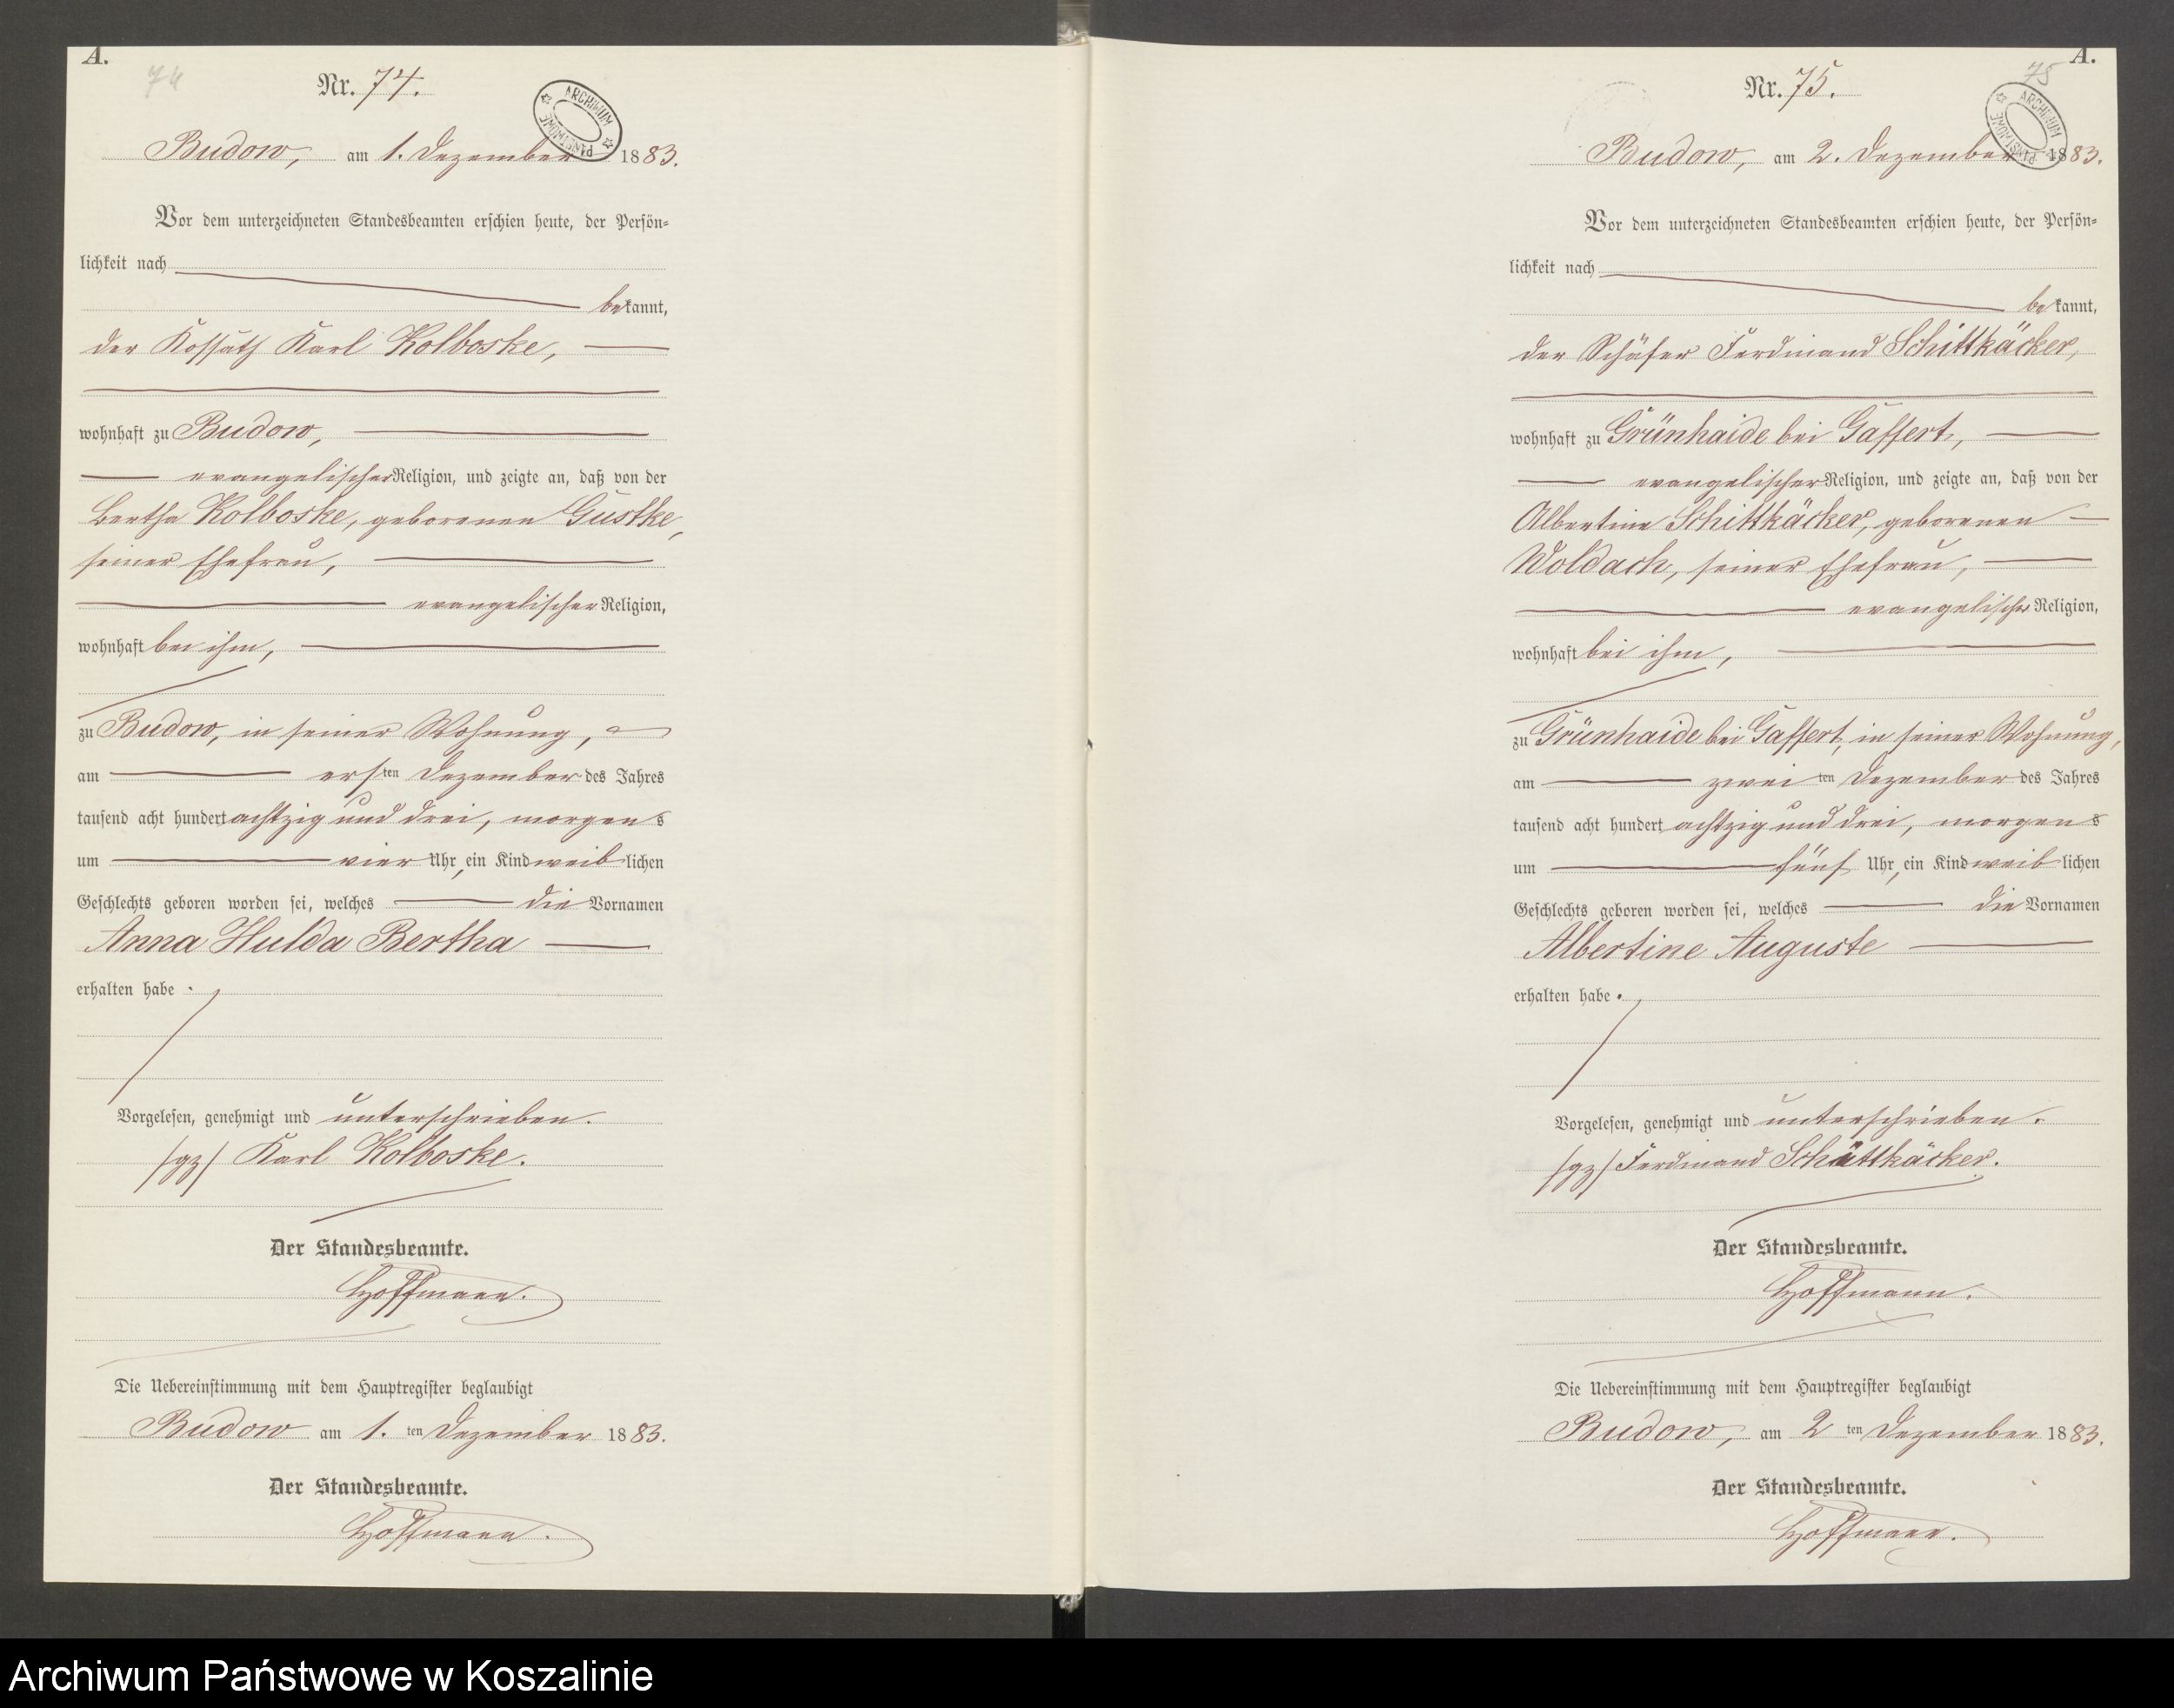 A.
74
Nr. 74.
ARCHIWUM PAŃSTWOWE
Budow, am 1. Dezember 1883.
Vor dem unterzeichneten Standesbeamten erschien heute, der Persön-
lichkeit nach
bekannt,
der Kossäth Karl Kolboske,
wohnhaft zu Budow,
evangelischer Religion, und zeigte an, daß von der
Bertha Kolboske, geborenen Gustke,
seiner Ehefrau,
evangelischer Religion,
wohnhaft bei ihm,
zu Budow, in seiner Wohnung,
am ersten Dezember des Jahres
tausend acht hundert achtzig und drei, morgens
um vier Uhr, ein Kind weiblichen
Geschlechts geboren worden sei, welches die Vornamen
Anna Hulda Bertha
erhalten habe.
Vorgelesen, genehmigt und unterschrieben.
/gz/ Karl Kolboske.
Der Standesbeamte.
Hoffmann.
Die Uebereinstimmung mit dem Hauptregister beglaubigt
Budow am 1. ten Dezember 1883.
Der Standesbeamte.
Hoffmann.
A.
75
Nr. 75.
ARCHIWUM PAŃSTWOWE
Budow, am 2. Dezember 1883.
Vor dem unterzeichneten Standesbeamten erschien heute, der Persön-
lichkeit nach
bekannt,
der Schäfer Ferdinand Schittkäcker,
wohnhaft zu Grünhaide bei Gaffert,
evangelischer Religion, und zeigte an, daß von der
Albertine Schittkäcker, geborenen
Woldach, seiner Ehefrau,
evangelischer Religion,
wohnhaft bei ihm,
zu Grünhaide bei Gaffert, in seiner Wohnung,
am zweiten Dezember des Jahres
tausend acht hundert achtzig und drei, morgens
um fünf Uhr, ein Kind weiblichen
Geschlechts geboren worden sei, welches die Vornamen
Albertine Auguste
erhalten habe.
Vorgelesen, genehmigt und unterschrieben.
/gz/ Ferdinand Schittkäcker.
Der Standesbeamte.
Hoffmann.
Die Uebereinstimmung mit dem Hauptregister beglaubigt
Budow, am 2 ten Dezember 1883.
Der Standesbeamte.
Hoffmann.
Archiwum Państwowe w Koszalinie